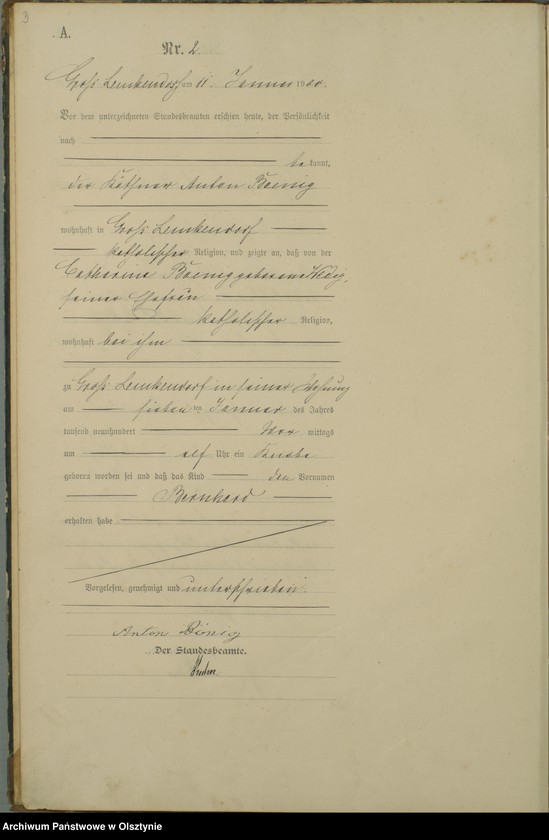 3
A.
Nr. 2
Groß Lemkendorf am 11. Januar 1900.
Vor dem unterzeichneten Standesbeamten erschien heute, der Persönlichkeit
nach
be kannt,
der Käthner Anton Boenig
wohnhaft in Groß Lemkendorf
katholischer Religion, und zeigte an, daß von der
Catharina Boenig geborene
seiner Ehefrau
katholischer Religion,
wohnhaft bei ihm
zu Groß Lemkendorf in seiner Wohnung
am sieben ten Januar des Jahres
tausend neunhundert Vor mittags
um elf Uhr ein Knabe
geboren worden sei und daß das Kind den Vornamen
Bernhard
erhalten habe
Vorgelesen, genehmigt und unterschrieben.
Anton Bönig
Der Standesbeamte.
Archiwum Państwowe w Olsztynie